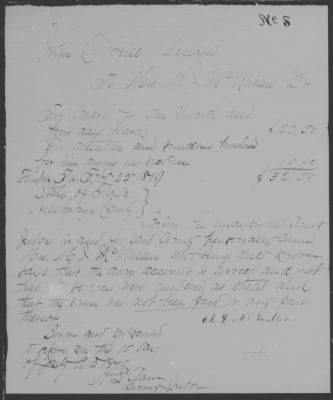 No 5
John O'Neill Deceased
To Mrs. M. J. McMullen Dr
For Board for one month and
four days board $22.50
For attention and sundries furnished
for him during his sickness 10.00
Tampa Fla Feby 22 1879 $32.50
State of Florida
Hillsborough County
Before the undersigned County
Judge in and for said County personally came
Mrs. M. J. McMullen who being duly sworn
says that the above account is correct and just
that the services were rendered as stated and
that the same has not been paid or any part
thereof
M. J. McMullen
Sworn and subscribed
to before me this 10 day
of A.D. 1879
County Judge